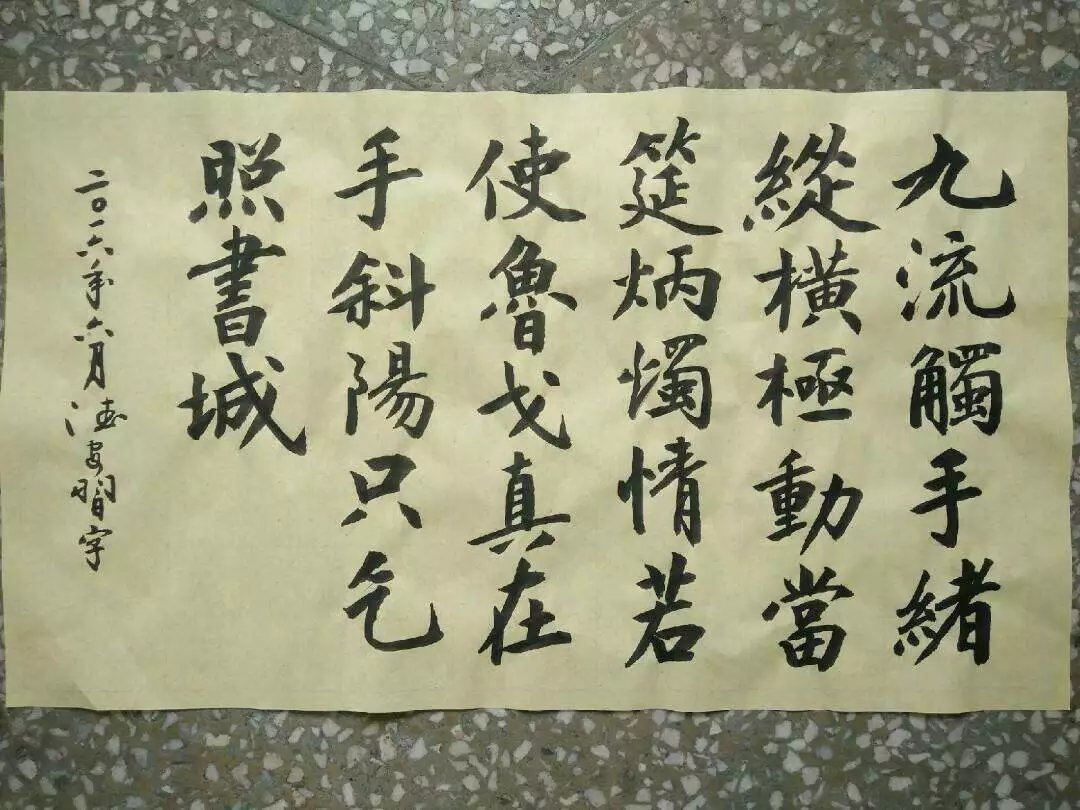 九流觸手緒
縱橫極動當
筵炳燭情若
使魯戈真在
手斜陽只乞
照書城
二〇一六年六月